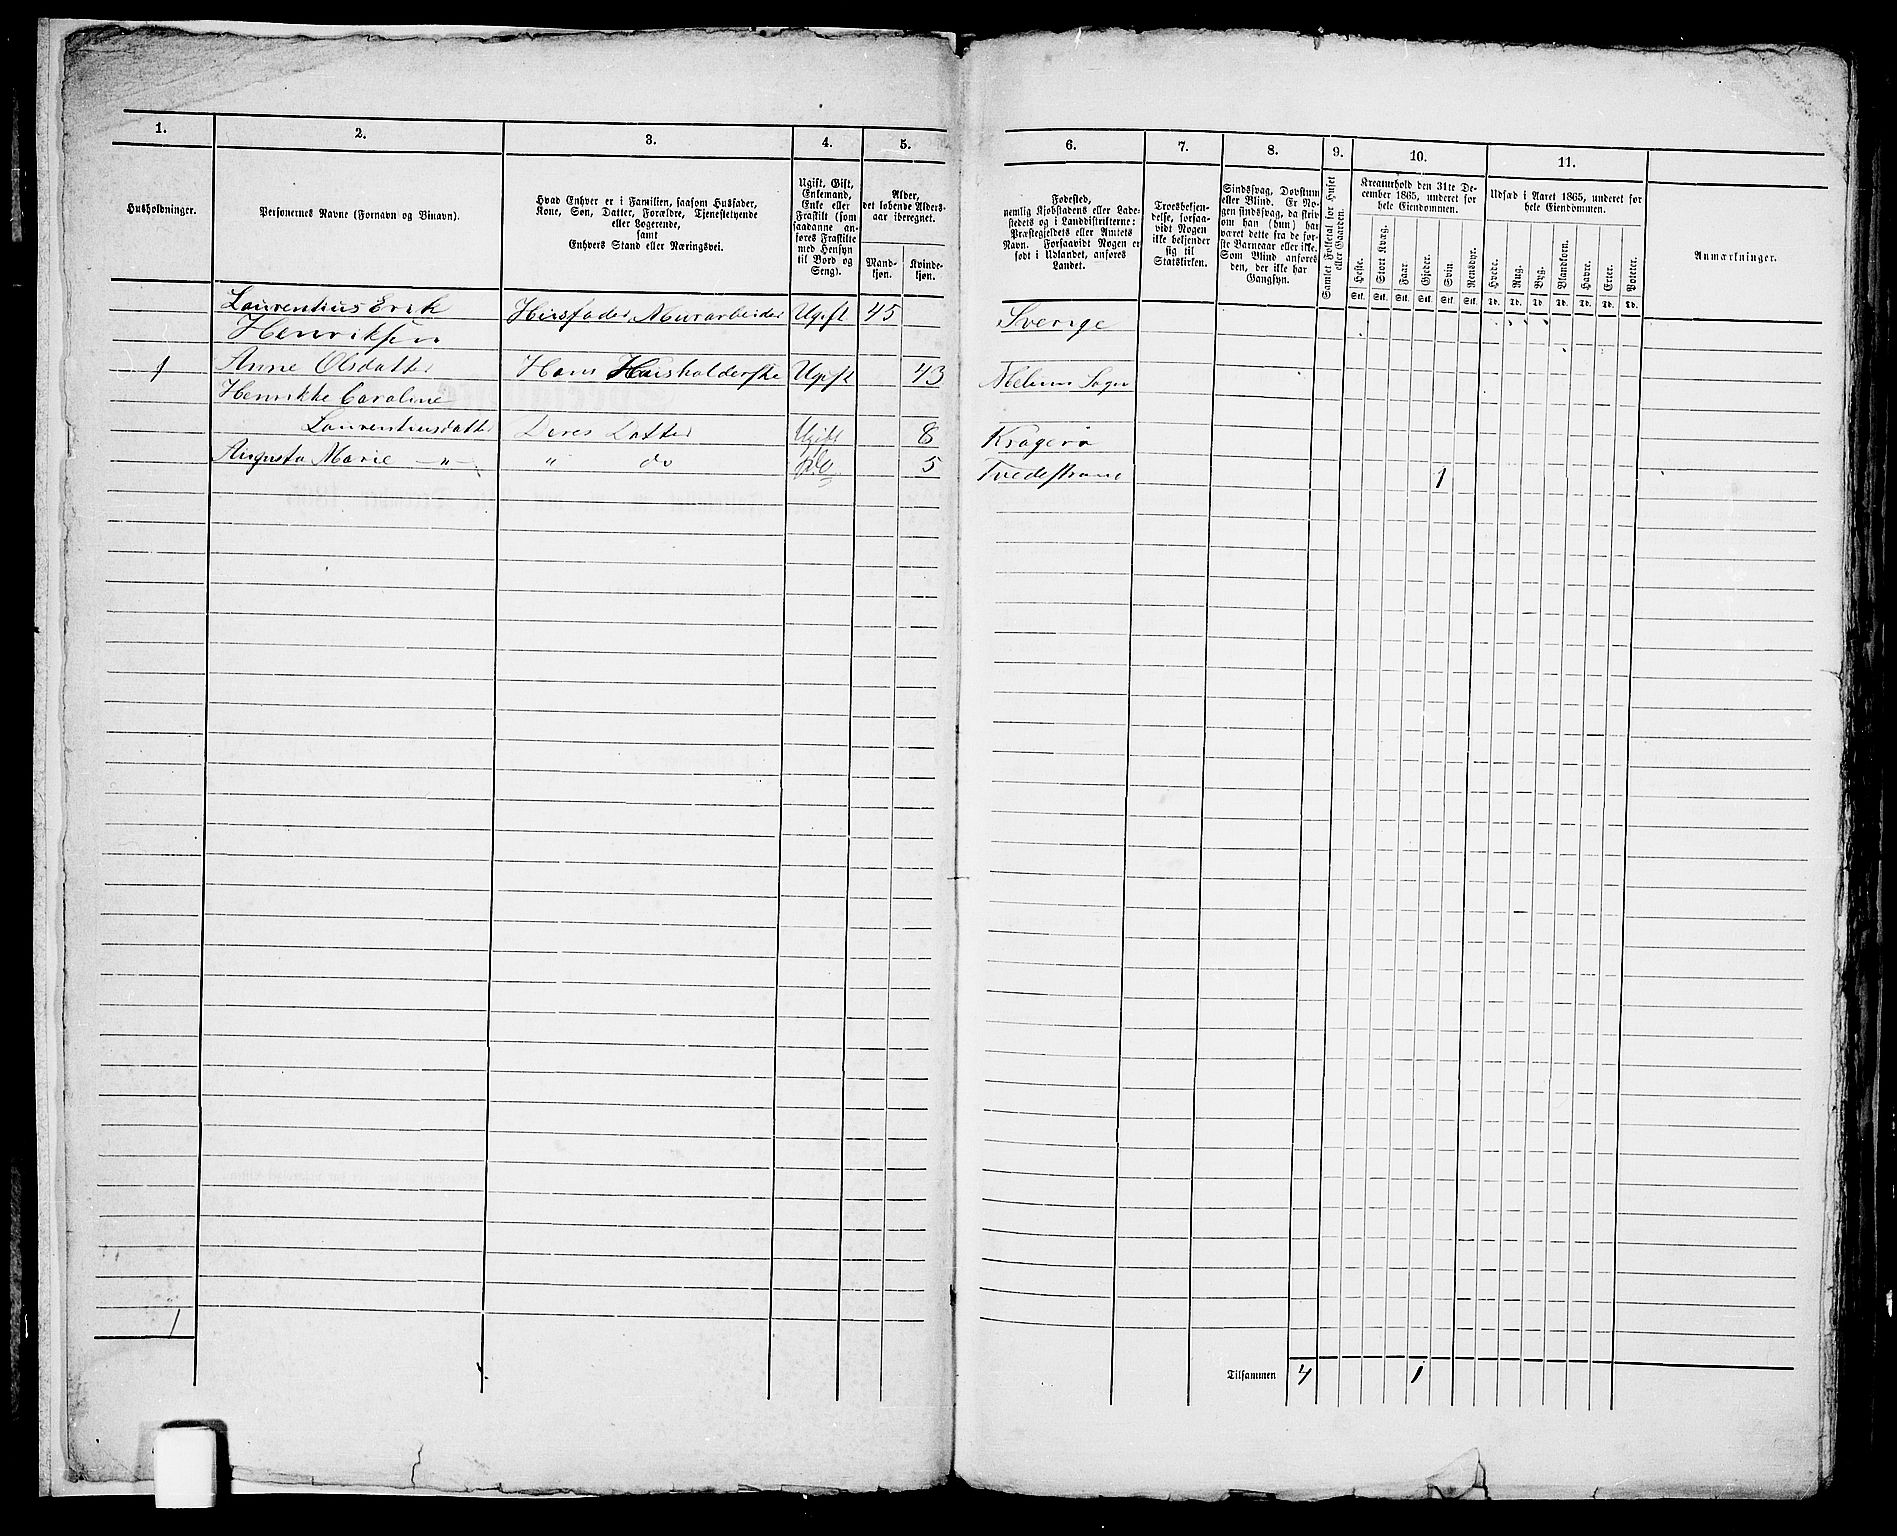 1. 2. 3. 4. 5. 6. 7. 8. 9. 10. 11.
Husholdninger.
Personernes Navne (Fornavn og Binavn).
Hvad Enhver er i Familien, saasom Husfader,
Kone, Søn, Datter, Forældre, Tjenestetyende
eller Logerende,
samt
Enhvers Stand eller Næringsvei.
Ugift, Gift,
Enkemand,
Enke eller
Fraskilt (som
saadanne an-
føres Fraskilte
med Hensyn
til Bord og
Seng).
Alder,
det løbende Alders-
aar iberegnet.
Mand-
kjøn.
Kvinde-
kjøn.
Fødested,
nemlig Kjøbstadens eller Lade-
stedets og i Landdistrikterne:
Præstegjeldets eller Amtets
Navn. Forsaavidt Nogen er
født i Udlandet, anføres
Landet.
Troesbekjen-
delse, forsaa-
vidt Nogen
ikke bekjender
sig til
Statskirken.
Sindssvag, Døvstum
eller Blind. Er No-
gen sindssvag, da skriv
om han (hun) har
været dette fra de før-
ste Barneaar eller ikke.
Som Blind anføres
den, der ikke har
Gangsyn.
Samlet Folketal for Huset
eller Gaarden.
Kreaturhold den 31te De-
cember 1865, underet for
hele Eiendommen.
Heste.
Stort Kvæg.
Faar.
Gjeder.
Svin.
Rensdyr.
Stk. Stk. Stk. Stk. Stk. Stk.
Udsæd i Aaret 1865, underet for
hele Eiendommen.
Hvede.
Rug.
Byg.
Blandkorn.
Havre.
Erter.
Poteter.
Td. Td. Td. Td. Td. Td. Td.
Anmærkninger.
Laurentius Erik
Henriksen Husfader, Murarbeider Ugift 45 Sverige
1 Anne Olsdatter Hans Husholderske Ugift 43 Melum Sogn
Henrikke Caroline
Laurentiusdatter Deres Datter Ugift 8 Kragerø
Augusta Marie — " — " do do 5 Tvedestrand 1
1
Tilsammen 4 1